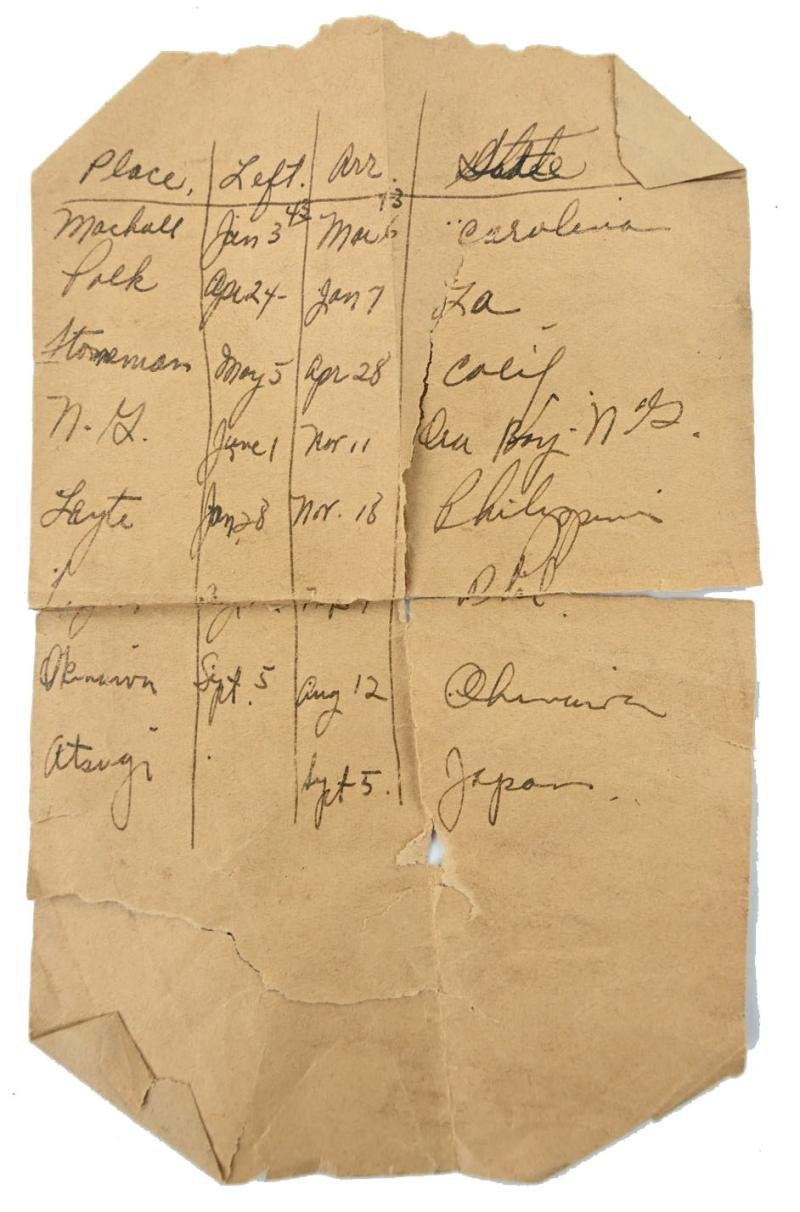 Place, Left. Arr. State
Mackall Jan 3 43 Mar 6 43 Carolina
Polk Apr 24 Jan 7 La
Stoneman May 5 Apr 28 Calif
N. G. June 1 Nov 11 Bay N.G.
Layte Jan 28 Nov. 18 Philippines
Okinawa Sept. 5 Aug 12 Okinawa
Atsugi Sept 5. Japan.